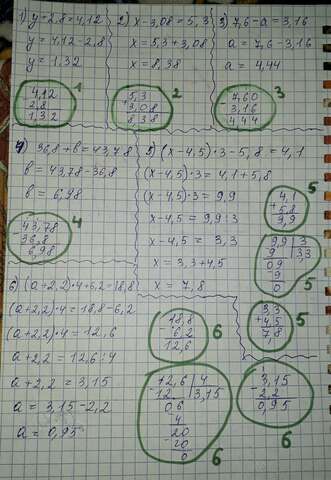 1) y+2,8=4,12
y=4,12-2,8
y=1,32
4,12
-
2,8
1,32
1
2) x-3,08=5,3
x=5,3+3,08
x=8,38
5,3
+
3,08
8,38
2
3) 7,6-a=3,16
a=7,6-3,16
a=4,44
7,60
-
3,16
4,44
3
4) 36,8+b=43,78
b=43,78-36,8
b=6,98
43,78
-
36,8
6,98
4
5) (x-4,5)·3-5,8=4,1
(x-4,5)·3=4,1+5,8
(x-4,5)·3=9,9
x-4,5=9,9:3
x-4,5=3,3
x=3,3+4,5
x=7,8
5
4,1
+
5,8
9,9
9,9 | 3
9 | 3,3
09
9
0
5
3,3
+
4,5
7,8
5
6) (a+2,2)·4+6,2=18,8
(a+2,2)·4=18,8-6,2
(a+2,2)·4=12,6
a+2,2=12,6:4
a+2,2=3,15
a=3,15-2,2
a=0,95
18,8
-
6,2
12,6
6
12,6 | 4
-
12 | 3,15
06
4
20
-
20
0
6
3,15
-
2,2
0,95
6